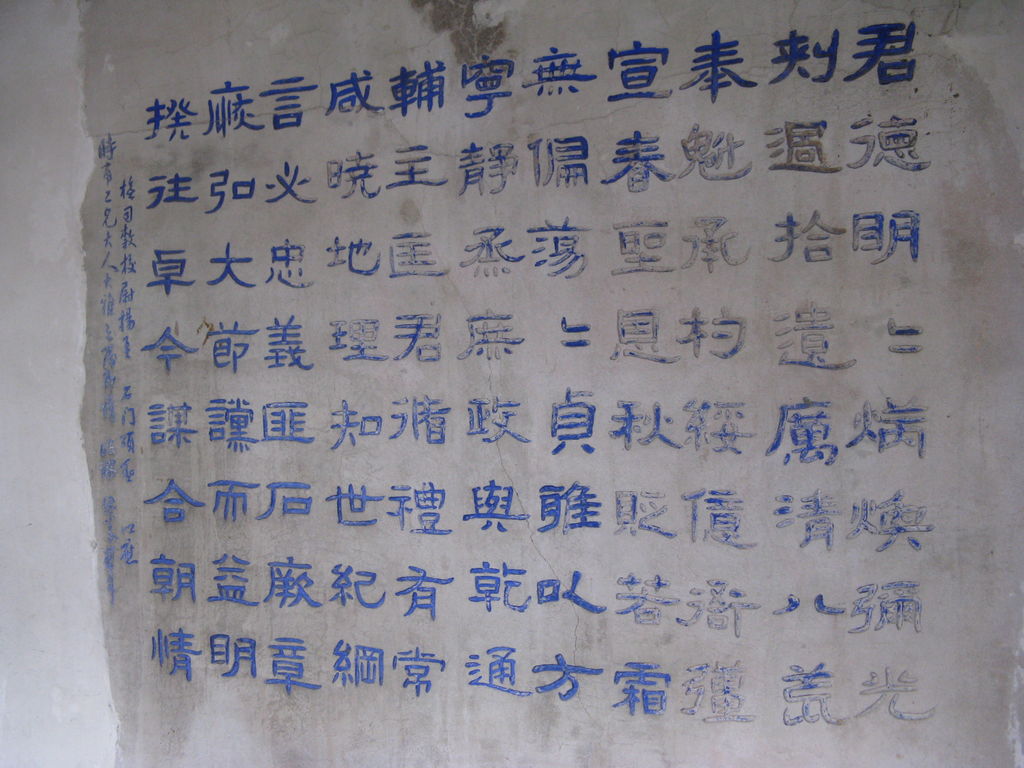 君德明〻炳煥彌光
刺過拾遺厲清八荒
奉魁承杓綏億衙彊
宣春聖恩秋貶若霜
無偏蕩〻貞雅以方
寧靜烝庶政與乾通
輔主匡君循禮有常
咸曉地理知世紀綱
言必忠義匪石厥章
恢弘大節讜而益明
揆往卓今謀合朝情
石门頌
兄大人